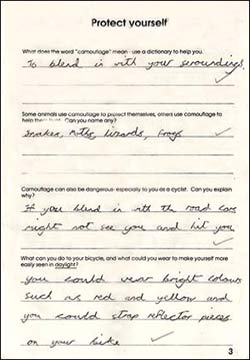 Protect yourself
What does the word "camouflage" mean - use a dictionary to help you.
To blend in with your serroundings.
Some animals use camouflage to protect themselves, others use camouflage to
help them hunt. Can you name any?
snakes, moths, lizards, frogs
Camouflage can also be dangerous especially to you as a cyclist. Can you explain
why?
If you blend in with the road cars
might not see you and hit you
What can you do to your bicycle, and what could you wear to make yourself more
easily seen in daylight?
you could wear bright colours
such as red and yellow and
you could strap reflector pieces
on your bike
3